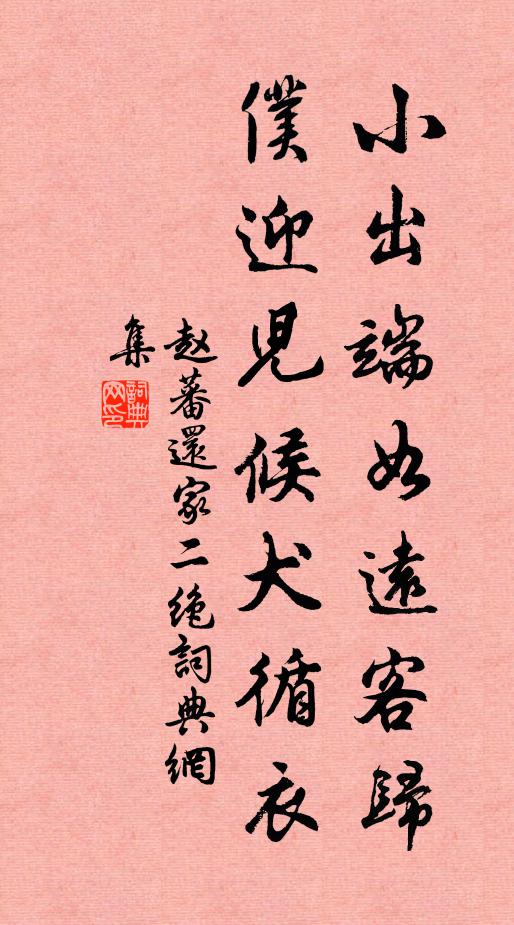 小出端如遠客歸
僕迎兒候犬循衣
赵蕃還家二绝詞典網
集
詞典
网印